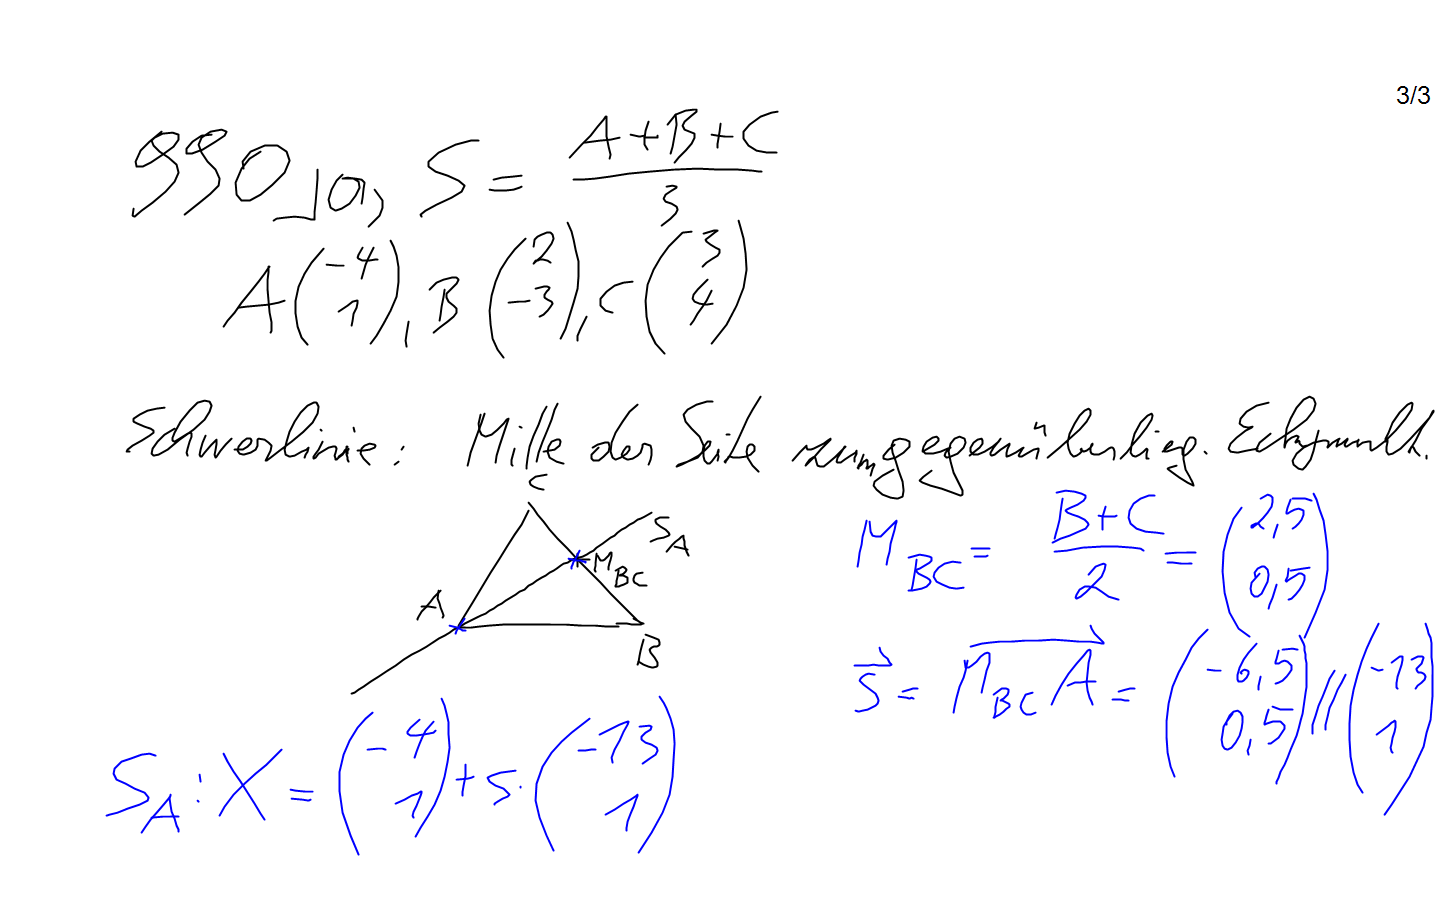 3/3
990 a, S = (A+B+C)/3
A(-4 1), B(2 -3), C(3 4)
Schwerlinie: Mitte der Seite zum gegenüberlieg. Eckpunkt.
C
S_A
M_BC
A
B
M_BC = (B+C)/2 = (2,5 0,5)
s⃗ = M_BC A⃗ = (-6,5 0,5) // (-13 1)
S_A: X = (-4 1) + s·(-13 1)